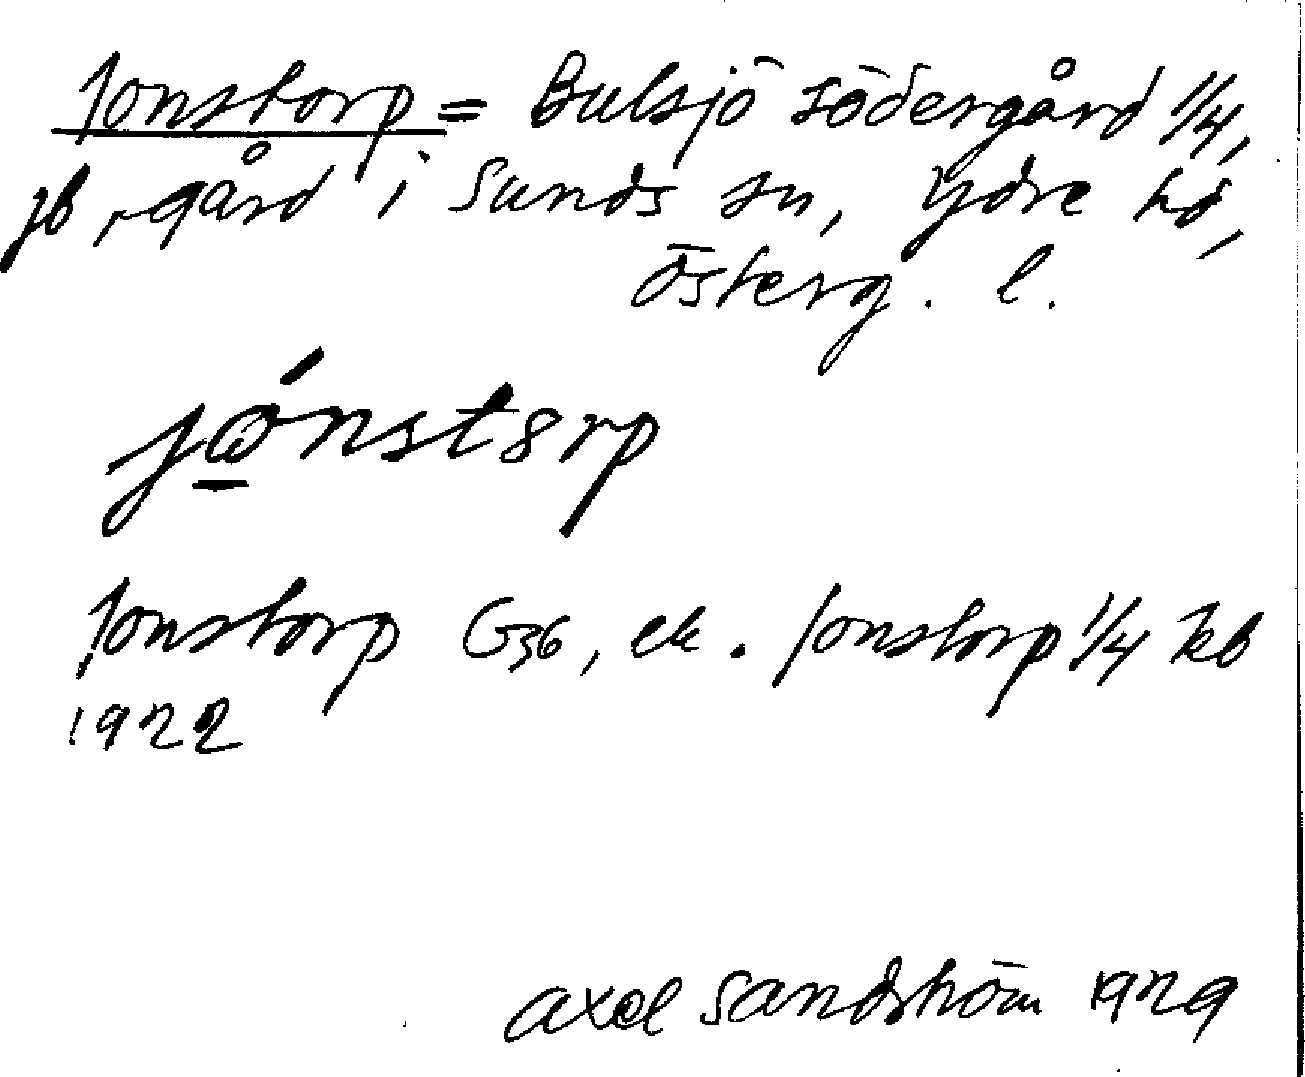 Jonstorp = Bulsjö södergård 1/4,
jb, -gård i Sunds sn, Ydre hd,
Österg. l.
jónstorp
Jonstorp G36, ek. Jonstorp 1/4 kb
1922
Axel Sandström 1929